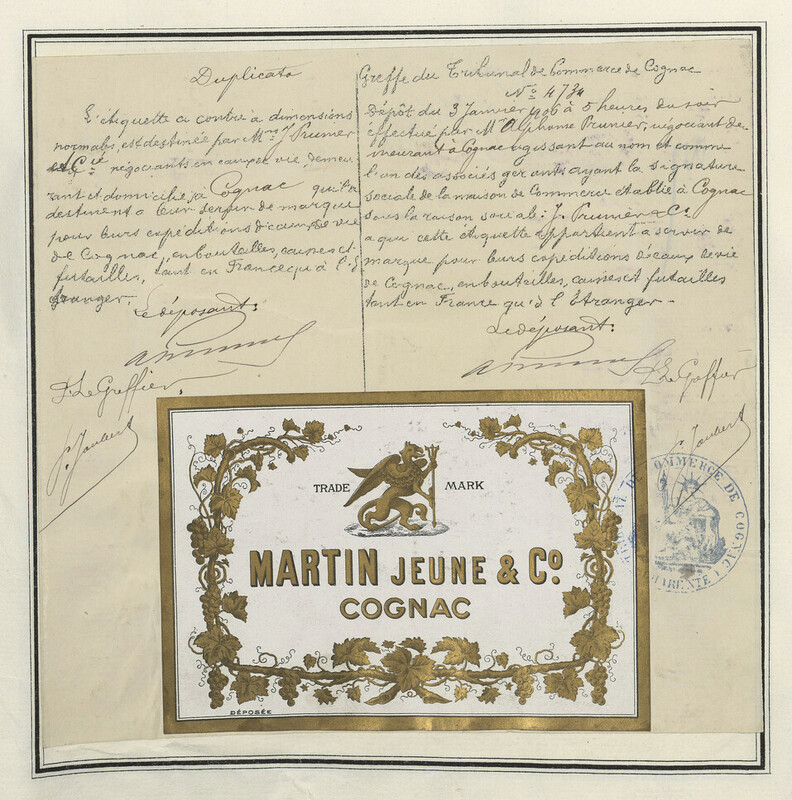 Duplicata
L'étiquette ci contre à dimensions
normales, est destinée par Mrs J. Prunier
et Cie négociants en eaux de vie, demeu
rant et domiciliés à Cognac qui la
destinent à leur servir de marque
pour leurs expéditions d'eaux de vie
de Cognac, en bouteilles, caisses et
futailles, tant en France qu'à l'É
tranger.
Le déposant:
Le Greffier,
P. Joubert
Greffe du Tribunal de Commerce de Cognac
No 4734
Dépôt du 3 Janvier 1906 à 5 heures du soir
effectué par Mr Alphonse Prunier, négociant de-
meurant à Cognac agissant au nom et comme
l'un des associés gérants ayant la signature
sociale de la maison de Commerce établie à Cognac
sous la raison sociale: J. Prunier & Co
à qui cette étiquette appartient à servir de
marque pour leurs expéditions d'eaux de vie
de Cognac, en bouteilles, caisses et futailles
tant en France qu'à l'Étranger -
Le déposant:
Le Greffier
P. Joubert
TRADE MARK
MARTIN JEUNE & Co
COGNAC
DÉPOSÉE
COMMERCE DE COGNAC
CHARENTE